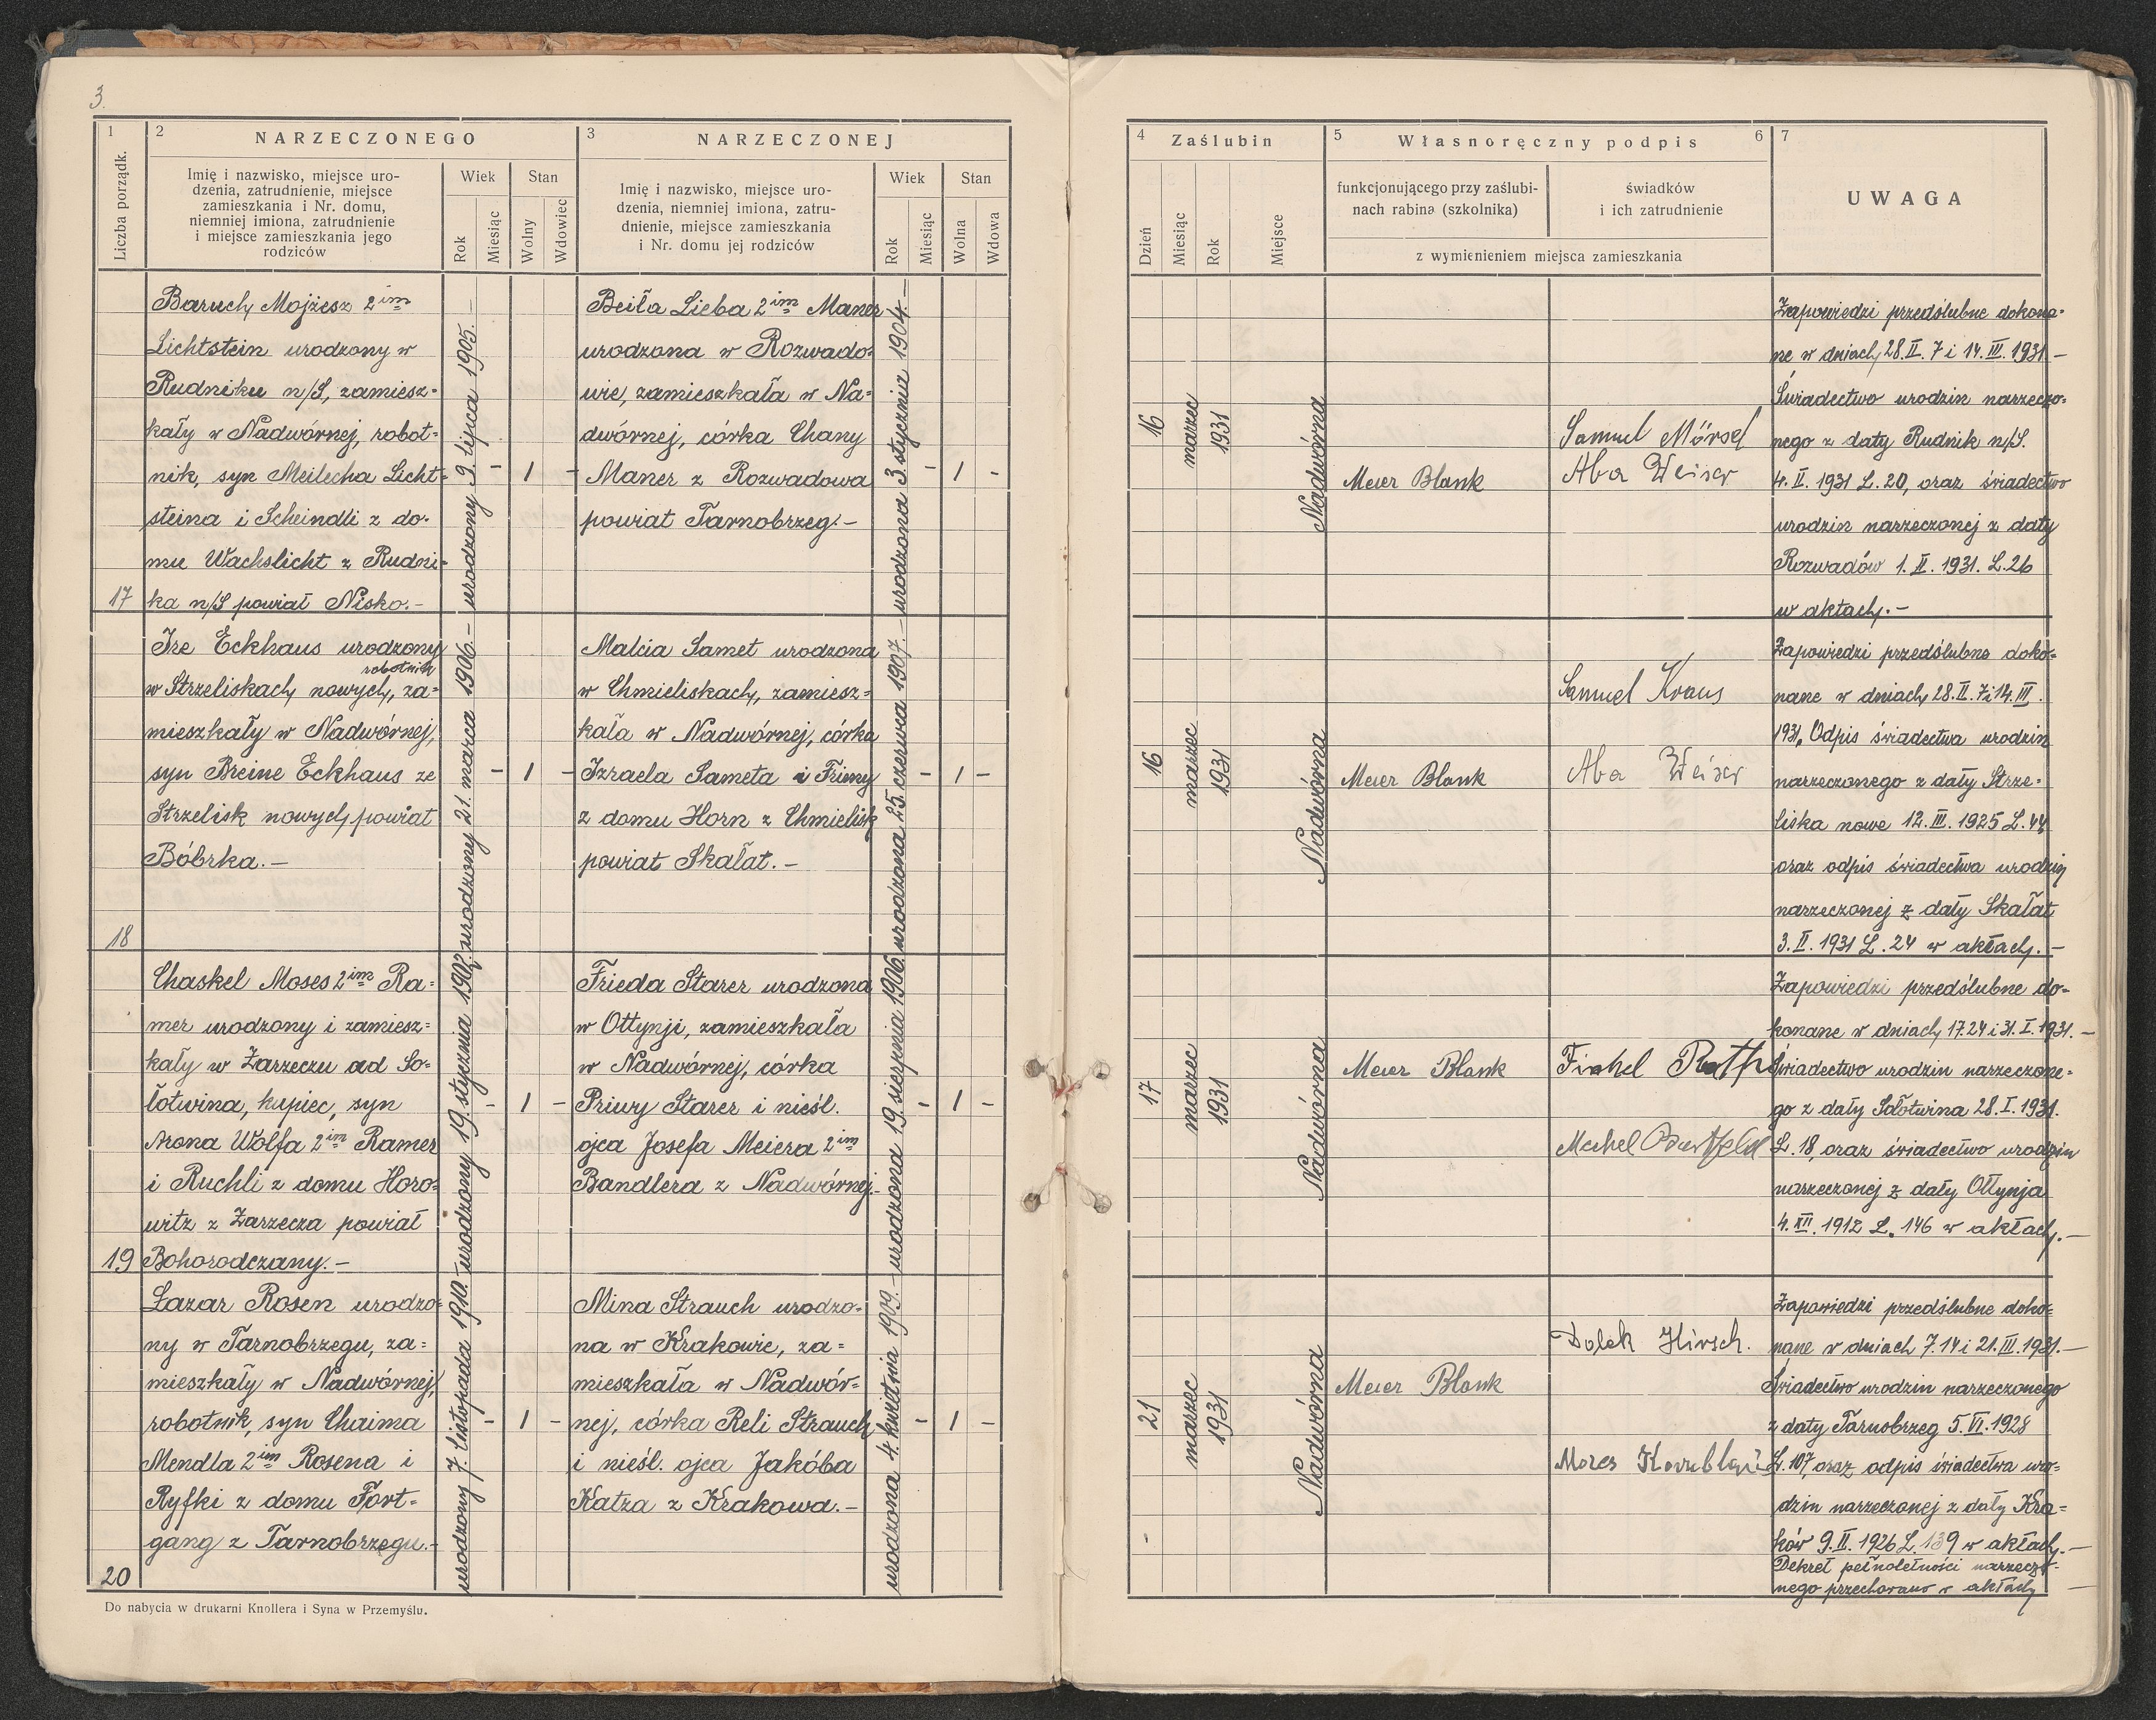 3.
1
2
NARZECZONEGO
3
NARZECZONEJ
Liczba porządk.
Imię i nazwisko, miejsce uro-
dzenia, zatrudnienie, miejsce
zamieszkania i Nr. domu,
niemniej imiona, zatrudnienie
i miejsce zamieszkania jego
rodziców
Wiek
Stan
Rok
Miesiąc
Wolny
Wdowiec
Imię i nazwisko, miejsce uro-
dzenia, niemniej imiona, zatru-
dnienie, miejsce zamieszkania
i Nr. domu jej rodziców
Wiek
Stan
Rok
Miesiąc
Wolna
Wdowa
4
Zaślubin
5
Własnoręczny podpis
6
7
Dzień
Miesiąc
Rok
Miejsce
funkcjonującego przy zaślubi-
nach rabina (szkolnika)
świadków
i ich zatrudnienie
z wymienieniem miejsca zamieszkania
UWAGA
17
Baruch Mojżesz 2im
Lichtstein urodzony w
Rudniku n/S, zamiesz-
kały w Nadwórnej, robot-
nik, syn Meilecha Licht-
steina i Scheindli z do-
mu Wachslicht z Rudni-
ka n/S powiat Nisko.-
urodzony 9. lipca 1905.-
- 1 -
Beiła Lieba 2im Maner
urodzona w Rozwado-
wie, zamieszkała w Na-
dwórnej, córka Chany
Maner z Rozwadowa
powiat Tarnobrzeg.-
urodzona 3 stycznia 1904.-
- 1 -
16
marzec
1931
Nadwórna
Meier Blank
Samuel Mörsel
Aba Weiser
Zapowiedzi przedślubne dokona-
ne w dniach 28.II. 7 i 14.III. 1931.-
Świadectwo urodzin narzeczo-
nego z daty Rudnik n/S.
4. II. 1931 L. 20, oraz świadectwo
urodzin narzeczonej z daty
Rozwadów 1. II. 1931. L. 26
w aktach.-
18
Ire Eckhaus urodzony
robotnik
w Strzeliskach nowych, za-
mieszkały w Nadwórnej,
syn Breine Eckhaus ze
Strzelisk nowych powiat
Bóbrka.-
urodzony 21. marca 1906.-
- 1 -
Malcia Samet urodzona
w Chmieliskach, zamiesz-
kała w Nadwórnej, córka
Izraela Sameta i Frimy
z domu Horn z Chmielisk
powiat Skałat.-
urodzona 25. czerwca 1907.-
- 1 -
16
marzec
1931
Nadwórna
Meier Blank
Samuel Kraus
Aba Weiser
Zapowiedzi przedślubne doko-
nane w dniach 28.II. 7 i 14. III.
1931. Odpis świadectwa urodzin
narzeczonego z daty Strze-
liska nowe 12. III. 1925 L. 44
oraz odpis świadectwa urodzin
narzeczonej z daty Skałat
3. II. 1931 L. 24 w aktach.-
19
Chaskel Moses 2im Ra-
mer urodzony i zamiesz-
kały w Zarzeczu ad So-
łotwina, kupiec, syn
Arona Wolfa 2im Ramer
i Ruchli z domu Horo-
witz z Zarzecza powiat
Bohorodczany.-
urodzony 19. stycznia 1902.
- 1 -
Frieda Starer urodzona
w Ottynji, zamieszkała
w Nadwórnej, córka
Priwy Starer i nieśl.
ojca Josefa Meiera 2im
Bandlera z Nadwórnej.-
urodzona 19. sierpnia 1906.
- 1 -
17
marzec
1931
Nadwórna
Meier Blank
Fishel Roth
Mechel
Zapowiedzi przedślubne do-
konane w dniach 17. 24 i 31. I. 1931.-
Świadectwo urodzin narzeczone-
go z daty Sołotwina 28. I. 1931.
L. 18, oraz świadectwo urodzin
narzeczonej z daty Ottynja
4. XII. 1912 L. 146 w aktach.-
20
Łazar Rosen urodzo-
ny w Tarnobrzegu, za-
mieszkały w Nadwórnej,
robotnik, syn Chaima
Mendla 2im Rosena i
Ryfki z domu Fort-
gang z Tarnobrzegu.-
urodzony 7. listopada 1910.
- 1 -
Mina Strauch urodzo-
na w Krakowie, za-
mieszkała w Nadwór-
nej, córka Reli Strauch
i nieśl. ojca Jakóba
Katza z Krakowa.-
urodzona 4. kwietnia 1909.-
- 1 -
21
marzec
1931
Nadwórna
Meier Blank
Dolek Hirsch.
Moses
Zapowiedzi przedślubne doko-
nane w dniach 7. 14 i 21. III. 1931.-
Świadectwo urodzin narzeczonego
z daty Tarnobrzeg 5. VI. 1928
L. 107, oraz odpis świadectwa uro-
dzin narzeczonej z daty Kra-
ków 9. II. 1926 L. 139 w aktach.-
Dekret pełnoletności narzeczo-
nego przechowano w aktach
Do nabycia w drukarni Knollera i Syna w Przemyślu.